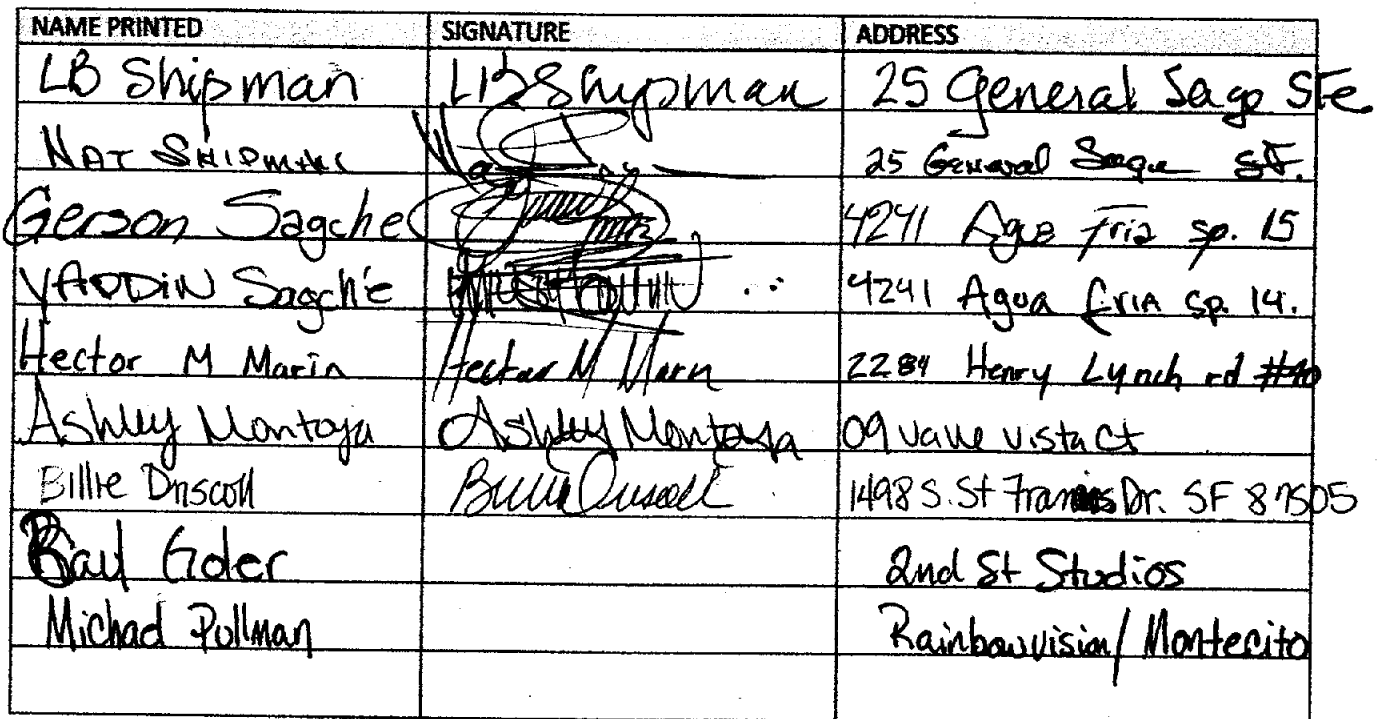 NAME PRINTED SIGNATURE ADDRESS
LB Shipman LB Shipman 25 General Sage Ste
NAT SHIPMAN 25 General Sage St.
Gerson Sagche 4241 Agua Fria sp. 15
YADDIN Sagche 4241 Agua fria sp. 14.
Hector M Marin Hector M Marin 2284 Henry Lynch rd #40
Ashley Montoya Ashley Montoya 09 Valle Vista Ct
Billie Driscoll Billie Driscoll 1498 S. St Francis Dr. SF 87505
Goler 2nd St Studios
Michael Pullman Rainbowvision/Montecito